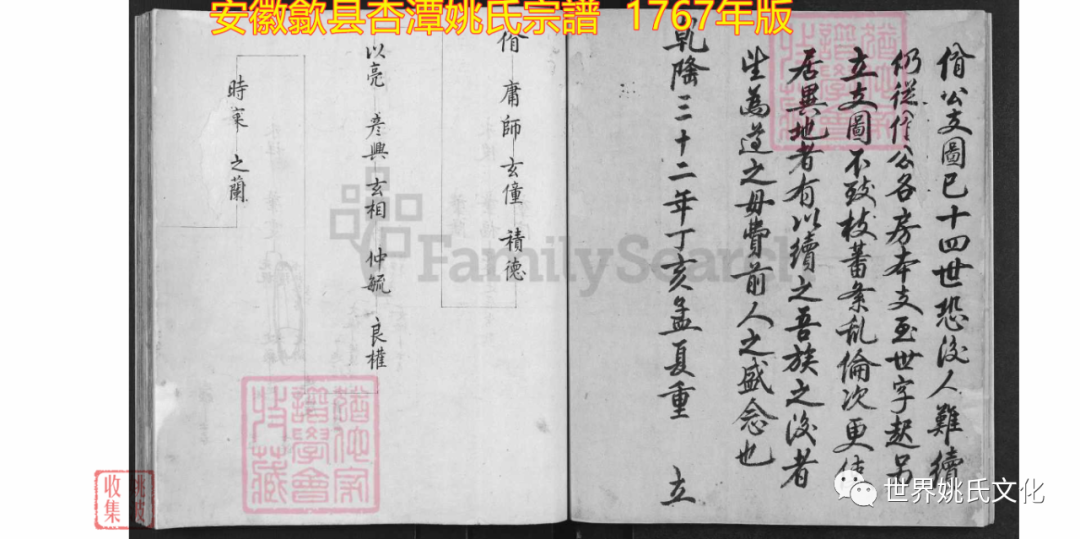 安徽歙县杏潭姚氏宗譜 1767年版
佾公支圖已十四世恐後人難續
仍從佾公各房本支至世字起另
立支圖不致枝蕃条乱倫次更使
居異地者有以續之吾族之後者
望為道之毋費前人之盛念也
乾隆三十二年丁亥孟夏重 立
佾 庸 師 玄僮 積德
以亮 彦興 玄相 仲毓 良權
時寀 之蘭
FamilySearch
收集
世界姚氏文化